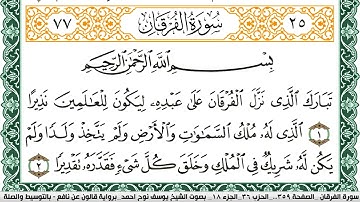 ٢٥ سُورَةُ الفُرْقَانِ ٧٧
بِسْمِ اللَّهِ الرَّحْمَٰنِ الرَّحِيمِ
تَبَارَكَ الَّذِى نَزَّلَ الْفُرْقَانَ عَلَىٰ عَبْدِهِۦ لِيَكُونَ لِلْعَٰلَمِينَ نَذِيرًا
١ الَّذِى لَهُۥ مُلْكُ السَّمَٰوَٰتِ وَالْأَرْضِ وَلَمْ يَتَّخِذْ وَلَدًا وَلَمْ
يَكُن لَّهُۥ شَرِيكٌ فِى الْمُلْكِ وَخَلَقَ كُلَّ شَىْءٍ فَقَدَّرَهُۥ تَقْدِيرًا ٢
سورة الفرقان . الصفحة ٣٥٩ . الحزب ٣٦ . الجزء ١٨ . بصوت الشيخ يوسف نوح أحمد برواية قالون عن نافع - بالتوسيط والصلة